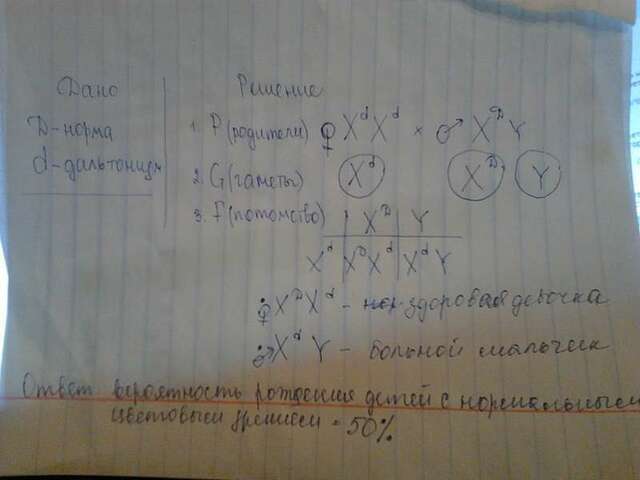 Дано
Решение
D-норма
d-дальтонизм
1. P(родители) ♀ XᵈXᵈ × ♂ XᴰY
2. G(гаметы) Xᵈ Xᴰ Y
3. F(потомство) Xᴰ Y
Xᵈ XᴰXᵈ XᵈY
♀ XᴰXᵈ - здоровая девочка
♂ Xᵈ Y - больной мальчик
Ответ вероятность рождения детей с нормальным
цветовым зрением = 50%